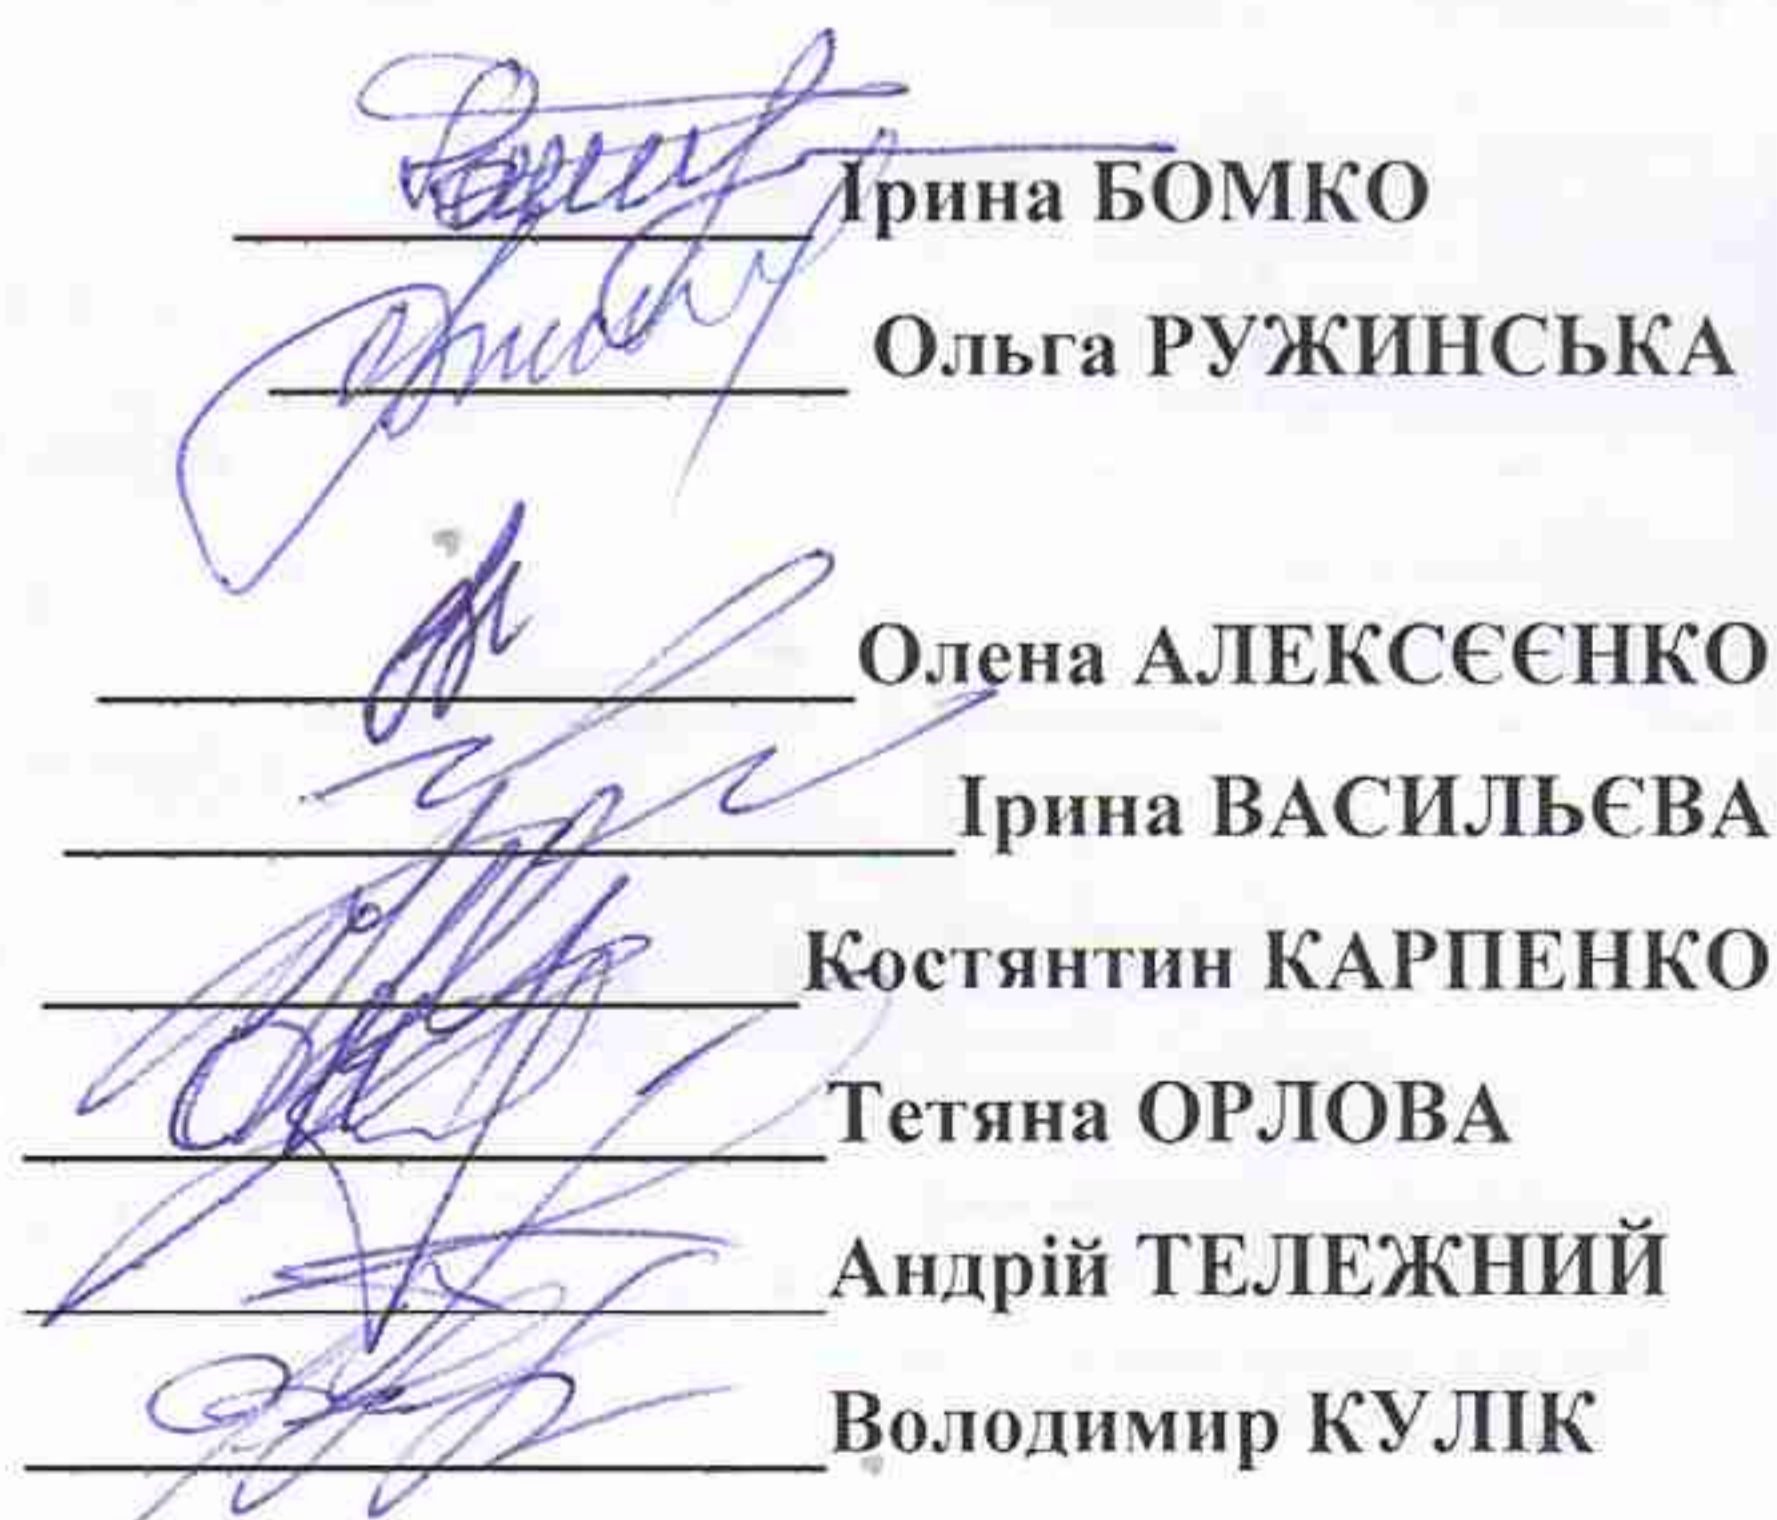 Ірина БОМКО
Ольга РУЖИНСЬКА
Олена АЛЕКСЄЄНКО
Ірина ВАСИЛЬЄВА
Костянтин КАРПЕНКО
Тетяна ОРЛОВА
Андрій ТЕЛЕЖНИЙ
Володимир КУЛІК